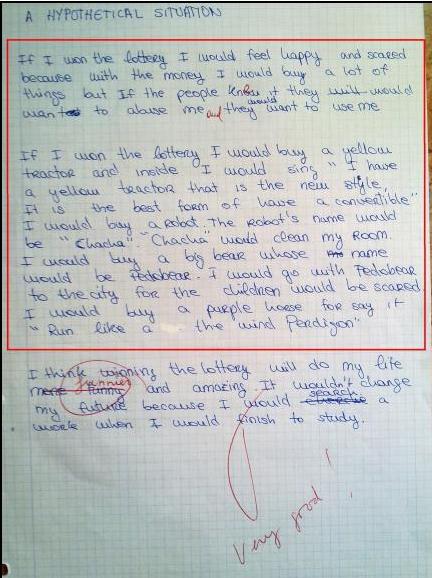 A HYPOTHETICAL SITUATION
If I won the lottery I would feel happy and scared
because with the money I would buy a lot of
things but If the people knew it they will would
want to to abuse me and they would want to use me
If I won the lottery I would buy a yellow
tractor and inside I would sing " I have
a yellow tractor that is the new style,
It is the best form of have a convertible"
I would buy a robot. The robot's name would
be "Chacha" "Chacha" would clean my room.
I would buy a big bear whose name
would be Pedobear. I would go with Pedobear
to the city for the children would be scared
I would buy a purple horse for say it
"Run like a the wind Perdigon"
I think winning the lottery will do my life
more funny funnier and amazing. It wouldn't change
my future because I would search a
work when I would finish to study.
Very good!